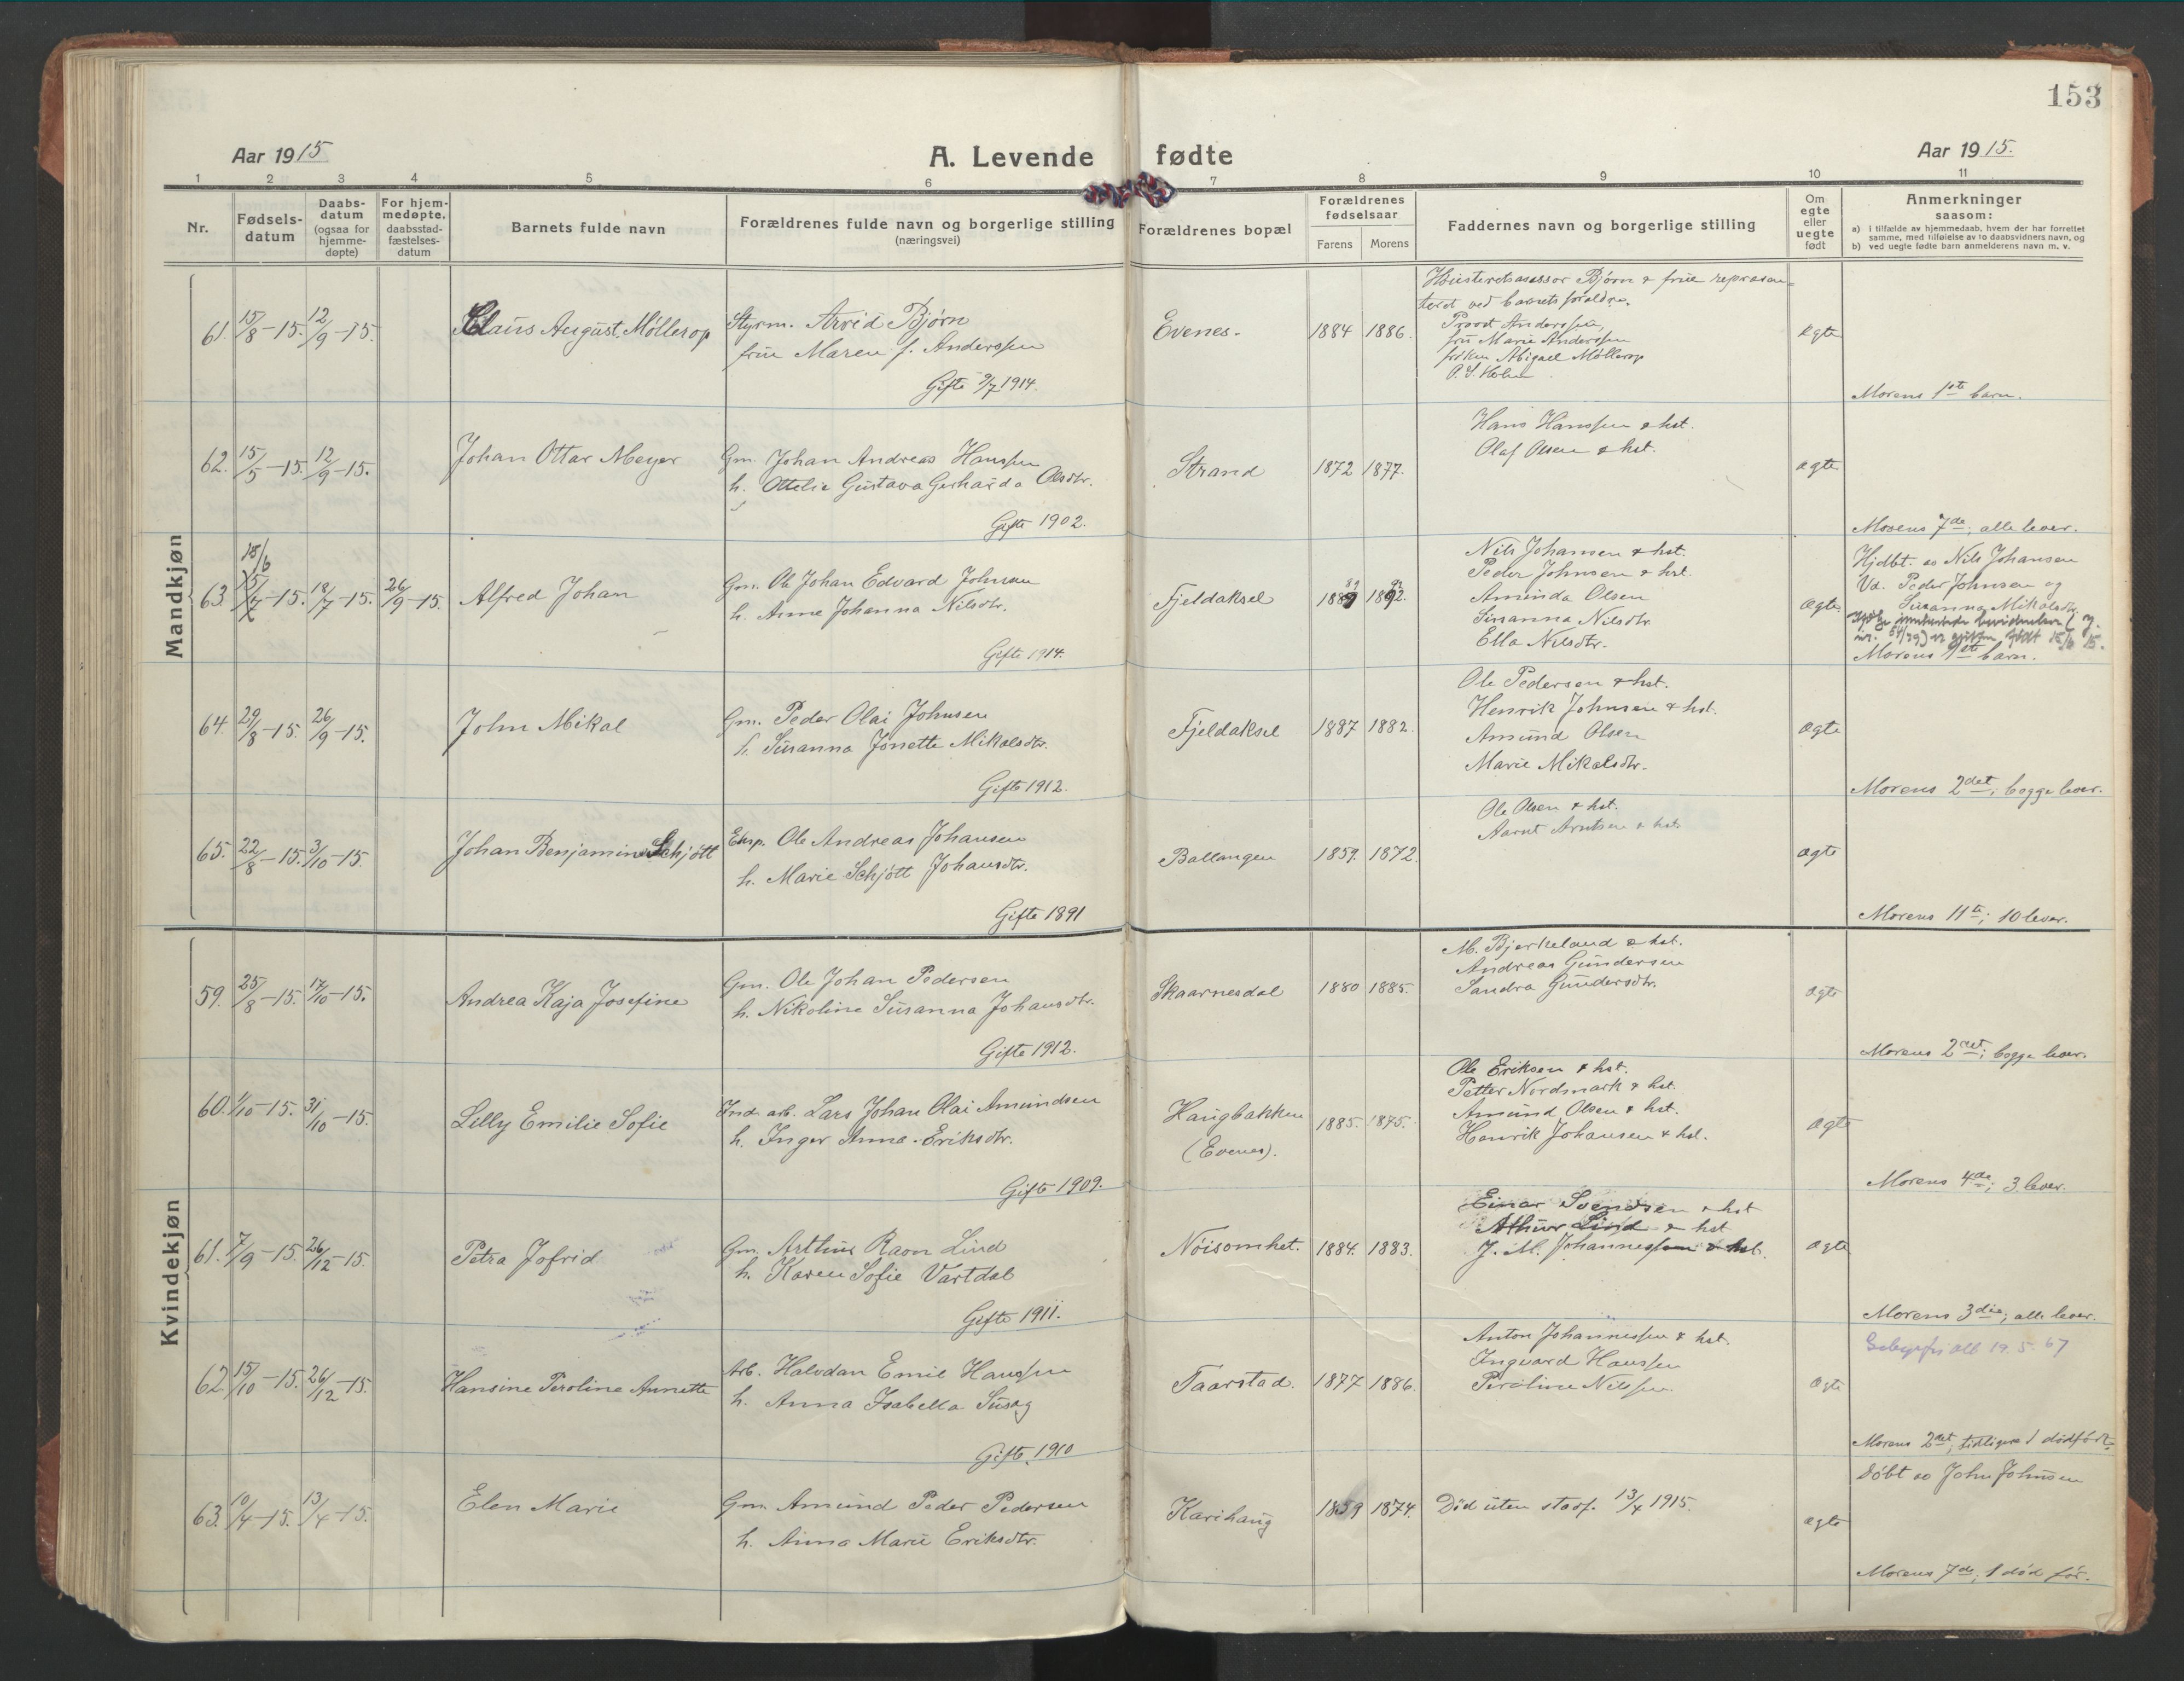 153
Aar 1915
A. Levende fødte
Aar 1915.
1 2 3 4 5 6 7 8 9 10 11
Nr.
Fødsels-
datum
Daabs-
datum
(ogsaa for
hjemme-
døpte)
For hjem-
medøpte,
daabsstad-
fæstelses-
datum
Barnets fulde navn
Forældrenes fulde navn og borgerlige stilling
(næringsvei)
Forældrenes bopæl
Forældrenes
fødselsaar
Farens Morens
Faddernes navn og borgerlige stilling
Om
egte
eller
uegte
født
Anmerkninger
saasom:
a) i tilfælde av hjemmedaab, hvem der har forrettet
samme, med tilføielse av to daabsvidners navn, og
b) ved uegte fødte barn anmelderens navn m. v.
Mandkjøn
61. 15/8-15. 12/9-15. Claus August Møllerop
Styrm. Arvid Bjørn
frue Maren f. Anderssen
Gifte 9/7 1914.
Evenes. 1884 1886.
Bjørn & frue repræsen=
teret ved barnets forældre.
Provst Anderssen,
fru Marie Anderssen
frøken Abigael Møllerop
egte
Morens 1ste barn.
62. 15/5-15. 12/9-15. Johan Ottar Meyer
Gm. Johan Andreas Hanssen
h. Ottelie Gustava Gerharda Olsdtr.
Gifte 1902.
Strand 1872 1877.
Hans Hanssen & hst.
Olaf Olsen & hst.
ægte
Morens 7de; alle lever.
63. 15/6 5/7-15. 18/7-15. 26/9-15. Alfred Johan
Gm. Ole Johan Edvard Johnsen
h. Anne Johanna Nilsdtr.
Gifte 1914.
Fjeldaksel 1889 1892.
Nils Johansen & hst.
Peder Johnsen & hst.
Aminda Olsen
Susanna Nilsdtr.
Ella Nilsdtr.
ægte
Hjdbt. av Nils Johansen
Va. Peder Johnsen og
Susanna Mikalsdtr.
født 15/6 15.
Morens 1ste barn.
64. 29/8-15. 26/9-15. John Mikal
Gm. Peder Olai Johnsen
h. Susanna Jonette Mikalsdtr.
Gifte 1912.
Fjeldaksel 1887 1882.
Ole Pedersen & hst.
Henrik Johnsen & hst.
Amund Olsen
Marie Mikalsdtr.
ægte
Morens 2det; begge lever.
65. 22/8-15. 3/10-15. Johan Benjamin Schjött
Eksp. Ole Andreas Johansen
h. Marie Schjött Johansdtr.
Gifte 1891
Ballangen 1859. 1872.
Ole Olsen & hst.
Aarnt Arntsen & hst.
ægte
Morens 11te; 10 lever.
Kvindekjøn
59. 25/8-15. 17/10-15. Andrea Kaja Josefine
Gm. Ole Johan Pedersen
h. Nikoline Susanna Johansdtr.
Gifte 1912.
Skaarnesdal 1880 1885.
M. Bjerkeland & hst.
Andreas Gundersen
Sandra Gundersdtr.
ægte
Morens 2det; begge lever.
60. 1/10-15. 31/10-15. Lilly Emilie Sofie
Ind. arb. Lars Johan Olai Amundsen
h. Inger Anna Eriksdtr.
Gifte 1909.
Haugbakken
(Evenes).
1885. 1875.
Ole Eriksen & hst.
Petter Nordmark & hst.
Amund Olsen & hst.
Henrik Johansen & hst.
ægte
Morens 4de; 3 lever.
61. 7/9-15. 26/12-15. Petra Jofrid
Gm. Arthur Ravn Lind
h. Karen Sofie Vartdal
Gifte 1911.
Nöisomhet. 1884. 1883.
Einar Svendsen & hst
Athur Lind & hst
J. M. Johannessen & hst.
ægte
Morens 3die; alle lever.
62. 15/10-15. 26/12-15. Hansine Peroline Annette
Arb. Halvdan Emil Hanssen
h. Anna Isabella Susag
Gifte 1910
Taarstad. 1877 1886.
Anton Johannessen & hst.
Ingvard Hanssen
Peroline Nilssen.
ægte
19. 5. 67
Morens 2det; tidligere 1 dødfødt.
63. 10/4-15. 13/4-15. Elen Marie
Gm. Amund Peder Pedersen
h. Anna Marie Eriksdtr.
Karihaug 1859 1874.
Död uten stadf. 13/4 1915.
ægte
Döbt av John Johnsen
Morens 7de; 1 død før.